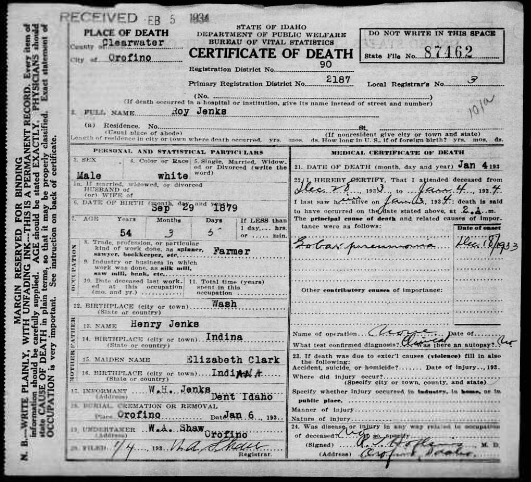 RECEIVED FEB 5 1934
STATE OF IDAHO
DEPARTMENT OF PUBLIC WELFARE
BUREAU OF VITAL STATISTICS
CERTIFICATE OF DEATH
DO NOT WRITE IN THIS SPACE
State File No. 87462
PLACE OF DEATH
County of Clearwater
City of Orofino
Registration District No. 90
Primary Registration District No. 2187 Local Registrar's No. 3
(No.
(If death occurred in a hospital or institution, give its name instead of street and number)
2. FULL NAME Roy Jenks
(a) Residence. No.
(Usual place of abode) (If nonresident give city or town and state)
Length of residence in city or town where death occurred. yrs. mos. ds. How long in U. S., if of foreign birth? yrs. mos. ds.
PERSONAL AND STATISTICAL PARTICULARS
3. SEX 4. Color or Race 5. Single, Married, Widowed, or Divorced (write the word)
Male white
5a. If married, widowed, or divorced
HUSBAND of
(or) WIFE of
6. DATE OF BIRTH (month, day and year) Sep 29 1879
7. AGE Years Months Days If LESS than 1 day, hrs. or min.
54 3 5
OCCUPATION
8. Trade, profession, or particular kind of work done, as spinner, sawyer, bookkeeper, etc. Farmer
9. Industry or business in which work was done, as silk mill, saw mill, bank, etc.
10. Date deceased last worked at this occupation (month and year)
11. Total time (years) spent in this occupation
12. BIRTHPLACE (city or town) Wash
(State or country)
13. NAME Henry Jenks
14. BIRTHPLACE (city or town) Indina
(State or country)
15. MAIDEN NAME Elizabeth Clark
16. BIRTHPLACE (city or town) Indiana
(State or country)
17. INFORMANT W.H. Jenks
(Address) Dent Idaho
18. BURIAL, CREMATION OR REMOVAL
Place Orofino Date Jan 6, 193
19. UNDERTAKER W.A. Shaw
(Address) Orofino
20. FILED 1/4, 193 W.A. Shaw
Registrar.
MEDICAL CERTIFICATE OF DEATH
21. DATE OF DEATH (month, day and year) Jan 4 193
22. I HEREBY CERTIFY, That I attended deceased from
Dec 28, 1933, to Jan 4, 1934
I last saw alive on Jan 3, 1934, death is said
to have occurred on the date stated above, at m.
The principal cause of death and related causes of importance were as follows:
Date of onset
Lobar pneumonia Dec 18/1933
Other contributory causes of importance:
Name of operation None Date of
What test confirmed diagnosis? Clinical Was there an autopsy? No
23. If death was due to external causes (violence) fill in also the following:
Accident, suicide, or homicide? Date of injury , 193
Where did injury occur?
(Specify city or town, county, and state)
Specify whether injury occurred in industry, in home, or in public place.
Manner of injury
Nature of injury
24. Was disease or injury in any way related to occupation of deceased? No If so, specify
(Signed) M. D.
(Address) Orofino, Idaho.
MARGIN RESERVED FOR BINDING
N. B.—WRITE PLAINLY, WITH UNFADING INK—THIS IS A PERMANENT RECORD. Every item of information should be carefully supplied. AGE should be stated EXACTLY. PHYSICIANS should state CAUSE OF DEATH in plain terms, so that it may be properly classified. Exact statement of OCCUPATION is very important. See instructions on back of certificate.